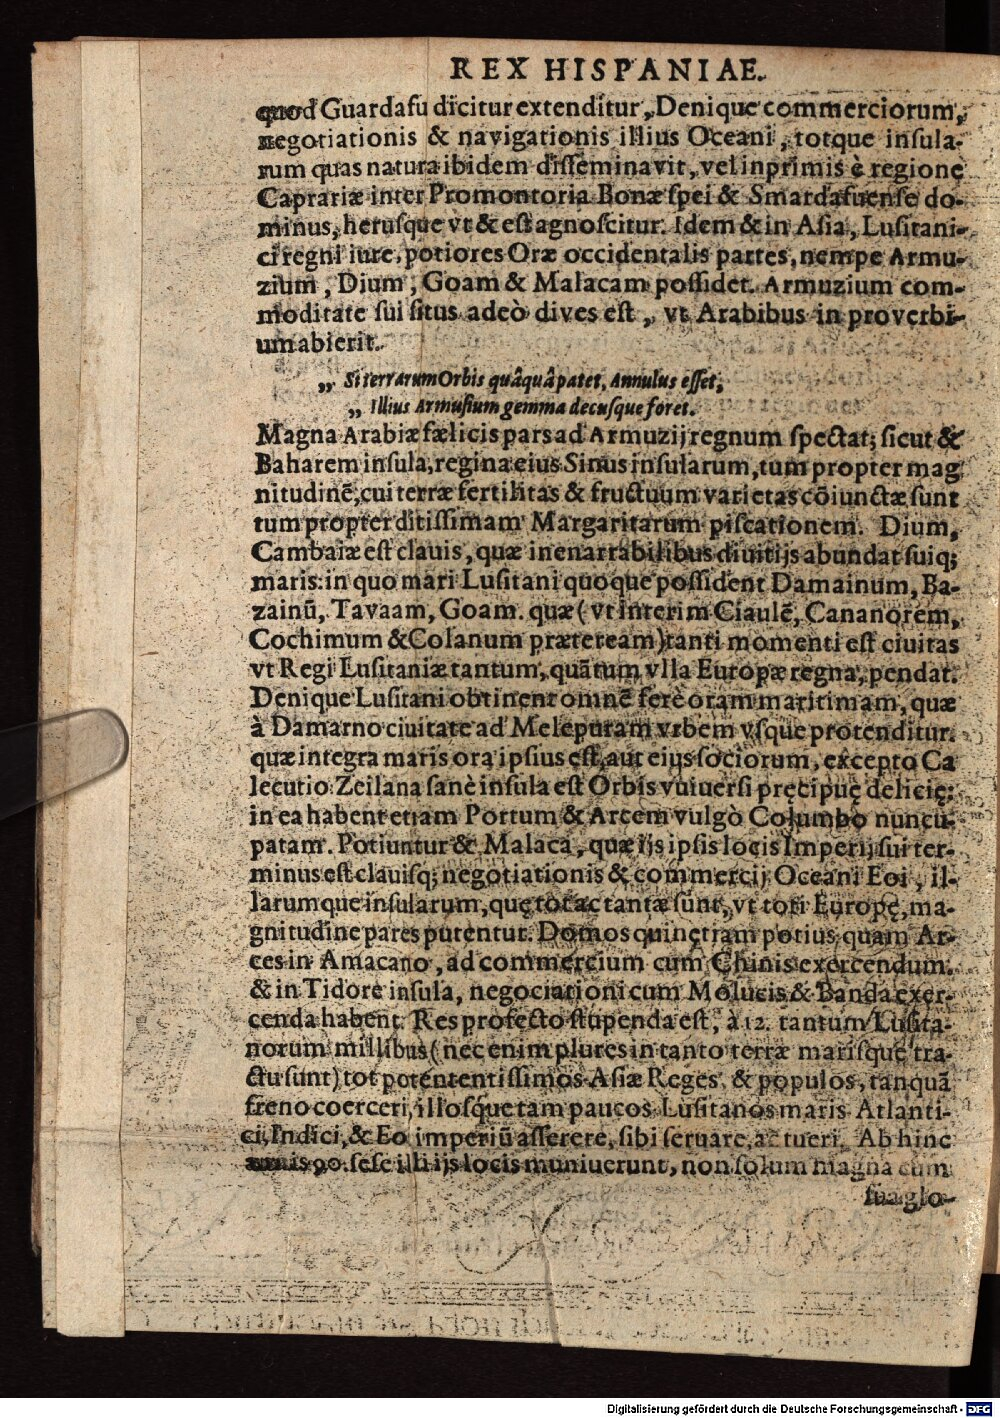 REX HISPANIAE.
quod Guardafu dicitur extenditur, Denique commerciorum,
negotiationis & navigationis illius Oceani, totque insula-
rum quas natura ibidem disseminavit, vel inprimis è regione
Caprariæ inter Promontoria Bonæ spei & Smardafuense do-
minus, herusque vt & est agnoscitur. Idem & in Asia, Lusitani-
ci regni iure, potiores Oræ occidentalis partes, nempe Armu-
zium, Dium, Goam & Malacam possidet. Armuzium com-
moditate sui situs adeò dives est, vt Arabibus in proverbi-
um abierit.
„ Si terrarum Orbis quâquâ patet, Annulus esset,
„ Illius Armusium gemma decusque foret.
Magna Arabiæ fælicis pars ad Armuzij regnum spectat; sicut &
Baharem insula, regina eius Sinus insularum, tum propter mag
nitudinē, cui terræ fertilitas & fructuum varietas cōiunctæ sunt
tum propter ditissimam Margaritarum piscationem. Dium,
Cambaiæ est clauis, quæ inenarrabilibus diuitijs abundat suiq;
maris: in quo mari Lusitani quoque possident Damainum, Ba-
zainū, Tavaam, Goam. quæ (vt interim Ciaulē, Cananorem,
Cochimum & Colanum præteream) tanti momenti est ciuitas
vt Regi Lusitaniæ tantum, quātum vlla Europæ regna, pendat.
Denique Lusitani obtinent omnē ferè oram maritimam, quæ
à Damarno ciuitate ad Melepuram vrbem vsque protenditur.
quæ integra maris ora ipsius est, aut eius sociorum, excepto Ca
lecutio: Zeilana sanè insula est Orbis vniuersi pręcipuę delicię:
in ea habent etiam Portum & Arcem vulgò Columbo nuncu-
patam. Potiuntur & Malaca, quæ ijs ipsis locis Imperij sui ter-
minus est clauisq; negotiationis & commercij Oceani Eoi, il-
larumque insularum, quę tot ac tantæ sunt, vt toti Europę, ma-
gnitudine pares putentur. Domos quinetiam potius, quam Ar-
ces in Amacano, ad commercium cum Chinis exercendum.
& in Tidore insula, negociationi cum Molucis & Banda exer-
cenda habent. Res profecto stupenda est, à 12. tantum Lusita-
norum millibus (nec enim plures in tanto terræ marisque tra-
ctu sunt) tot potententissimos Asiæ Reges, & populos, tanquā
freno coerceri, illosque tam paucos Lusitanos maris Atlanti-
ci, Indici, & Eo imperiū asserere, sibi seruare, ac tueri. Ab hinc
annis 90. sese illi ijs locis muniuerunt, non solum magna cum
sua glo-
Digitalisierung gefördert durch die Deutsche Forschungsgemeinschaft - DFG